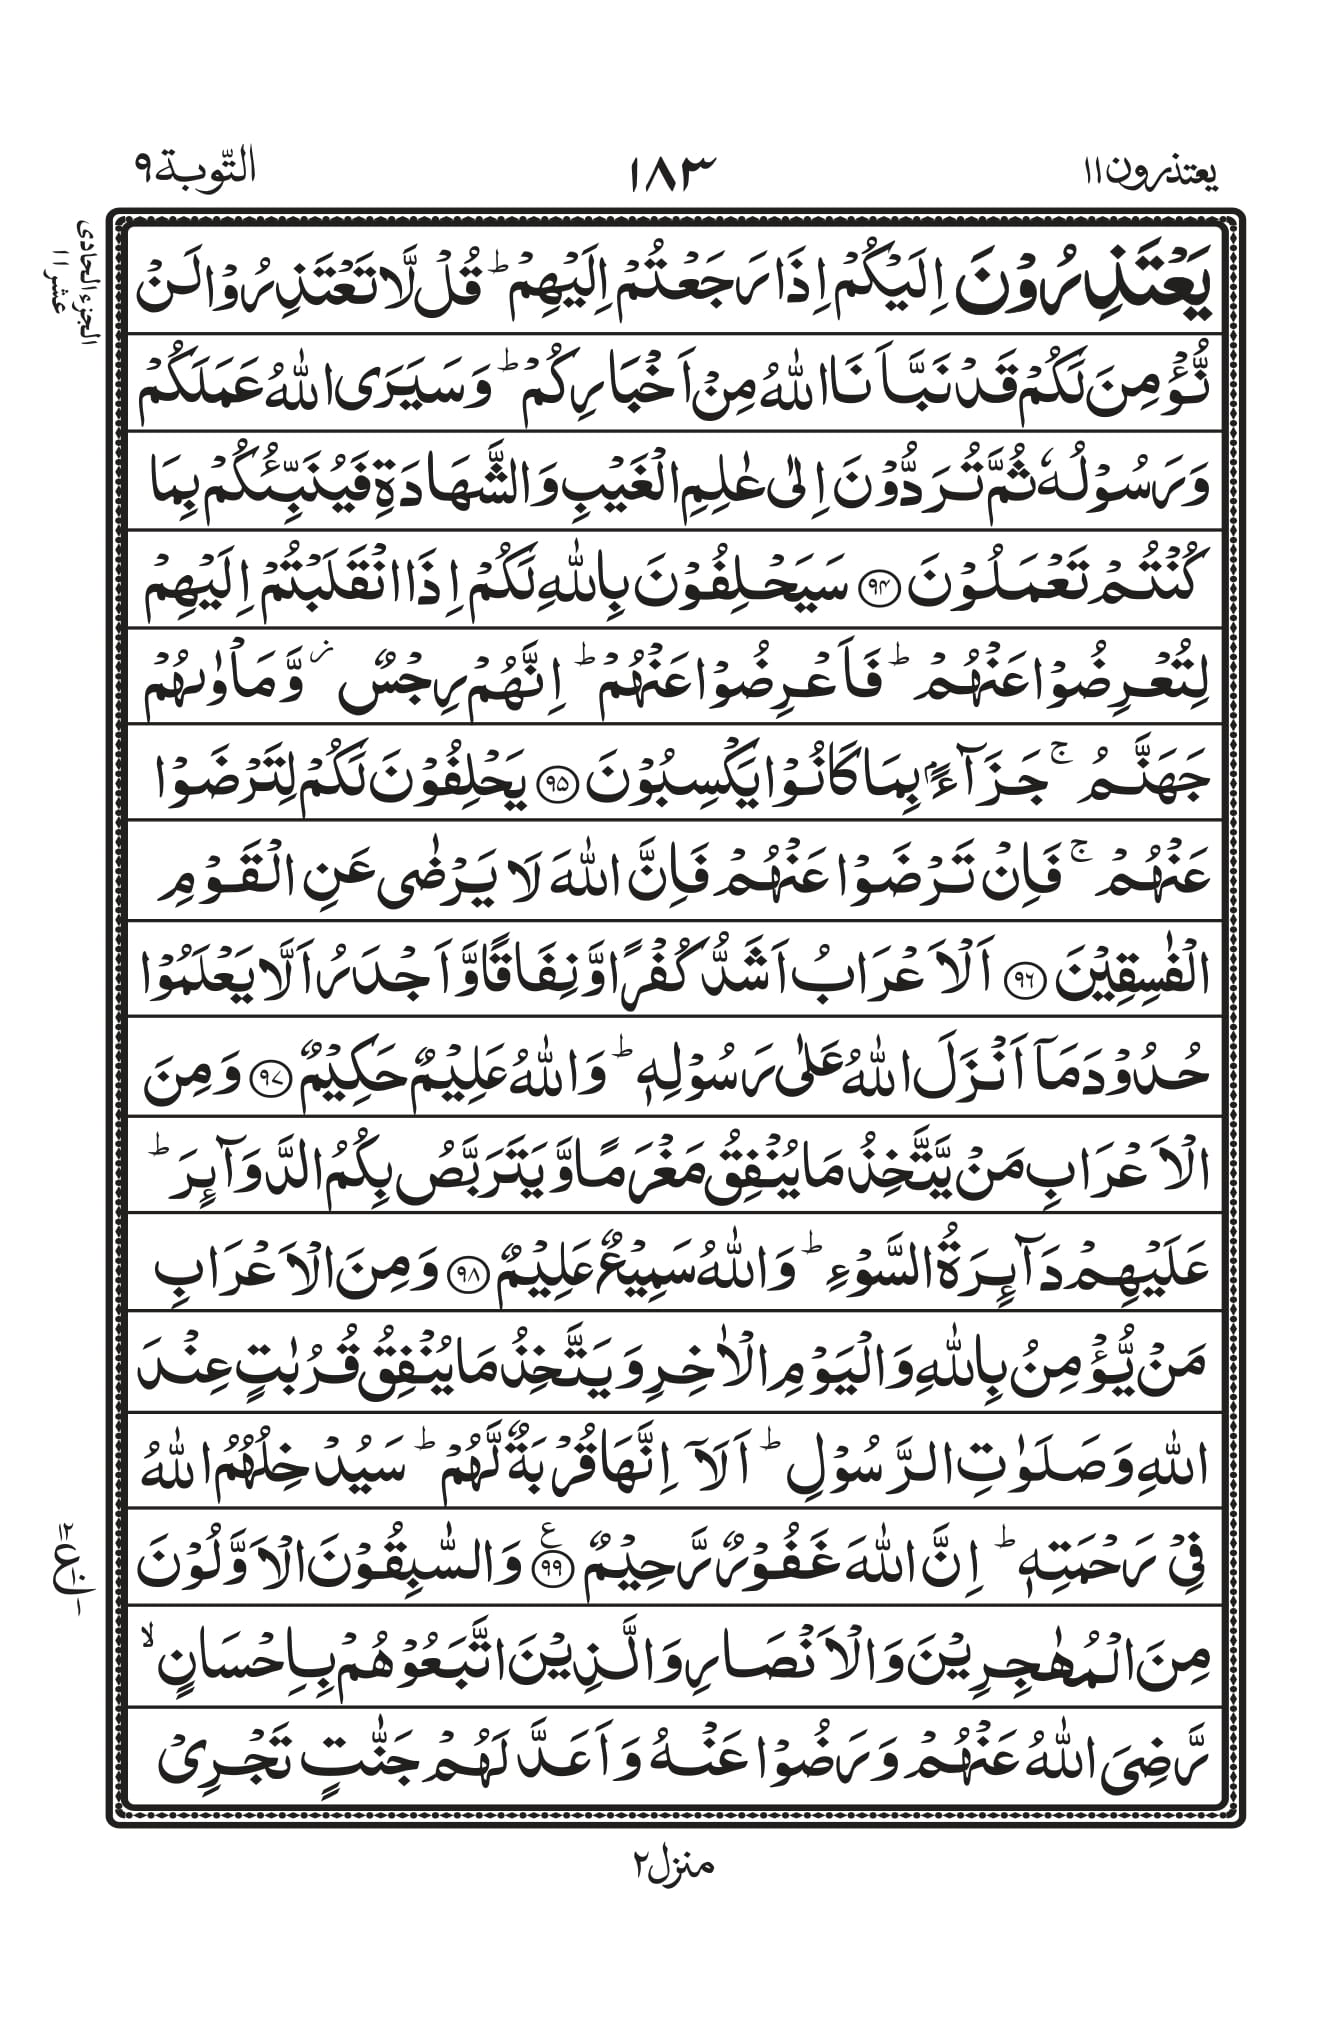 يعتذرون١١
١٨٣
التّوبة٩
الجزء الحادى عشر ١١
يَعْتَذِرُوْنَ اِلَيْكُمْ اِذَا رَجَعْتُمْ اِلَيْهِمْ ؕ قُلْ لَّا تَعْتَذِرُوْا لَنْ
نُّؤْمِنَ لَكُمْ قَدْ نَبَّاَنَا اللّٰهُ مِنْ اَخْبَارِكُمْ ؕ وَ سَيَرَى اللّٰهُ عَمَلَكُمْ
وَ رَسُوْلُهٗ ثُمَّ تُرَدُّوْنَ اِلٰى عٰلِمِ الْغَيْبِ وَ الشَّهَادَةِ فَيُنَبِّئُكُمْ بِمَا
كُنْتُمْ تَعْمَلُوْنَ ﴿۹۴﴾ سَيَحْلِفُوْنَ بِاللّٰهِ لَكُمْ اِذَا انْقَلَبْتُمْ اِلَيْهِمْ
لِتُعْرِضُوْا عَنْهُمْ ؕ فَاَعْرِضُوْا عَنْهُمْ ؕ اِنَّهُمْ رِجْسٌ ؗ وَّ مَاْوٰىهُمْ
جَهَنَّمُ ۚ جَزَآءًۢ بِمَا كَانُوْا يَكْسِبُوْنَ ﴿۹۵﴾ يَحْلِفُوْنَ لَكُمْ لِتَرْضَوْا
عَنْهُمْ ۚ فَاِنْ تَرْضَوْا عَنْهُمْ فَاِنَّ اللّٰهَ لَا يَرْضٰى عَنِ الْقَوْمِ
الْفٰسِقِيْنَ ﴿۹۶﴾ اَلْاَعْرَابُ اَشَدُّ كُفْرًا وَّ نِفَاقًا وَّ اَجْدَرُ اَلَّا يَعْلَمُوْا
حُدُوْدَ مَاۤ اَنْزَلَ اللّٰهُ عَلٰى رَسُوْلِهٖ ؕ وَ اللّٰهُ عَلِيْمٌ حَكِيْمٌ ﴿۹۷﴾ وَ مِنَ
الْاَعْرَابِ مَنْ يَّتَّخِذُ مَا يُنْفِقُ مَغْرَمًا وَّ يَتَرَبَّصُ بِكُمُ الدَّوَآىِٕرَ ؕ
عَلَيْهِمْ دَآىِٕرَةُ السَّوْءِ ؕ وَ اللّٰهُ سَمِيْعٌ عَلِيْمٌ ﴿۹۸﴾ وَ مِنَ الْاَعْرَابِ
مَنْ يُّؤْمِنُ بِاللّٰهِ وَ الْيَوْمِ الْاٰخِرِ وَ يَتَّخِذُ مَا يُنْفِقُ قُرُبٰتٍ عِنْدَ
اللّٰهِ وَ صَلَوٰتِ الرَّسُوْلِ ؕ اَلَاۤ اِنَّهَا قُرْبَةٌ لَّهُمْ ؕ سَيُدْخِلُهُمُ اللّٰهُ
فِيْ رَحْمَتِهٖ ؕ اِنَّ اللّٰهَ غَفُوْرٌ رَّحِيْمٌ ﴿۹۹﴾ ع وَ السّٰبِقُوْنَ الْاَوَّلُوْنَ
١٢ ع ١٠ ١
مِنَ الْمُهٰجِرِيْنَ وَ الْاَنْصَارِ وَ الَّذِيْنَ اتَّبَعُوْهُمْ بِاِحْسَانٍ ۙ
رَّضِيَ اللّٰهُ عَنْهُمْ وَ رَضُوْا عَنْهُ وَ اَعَدَّ لَهُمْ جَنّٰتٍ تَجْرِيْ
منزل٢